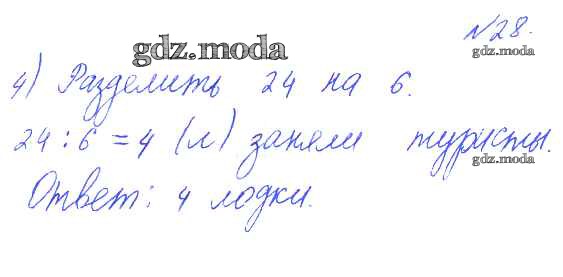 №28.
gdz.moda
gdz.moda
4) Разделить 24 на 6.
24 : 6 = 4 (л) заняли туристы.
gdz.moda
Ответ: 4 лодки.